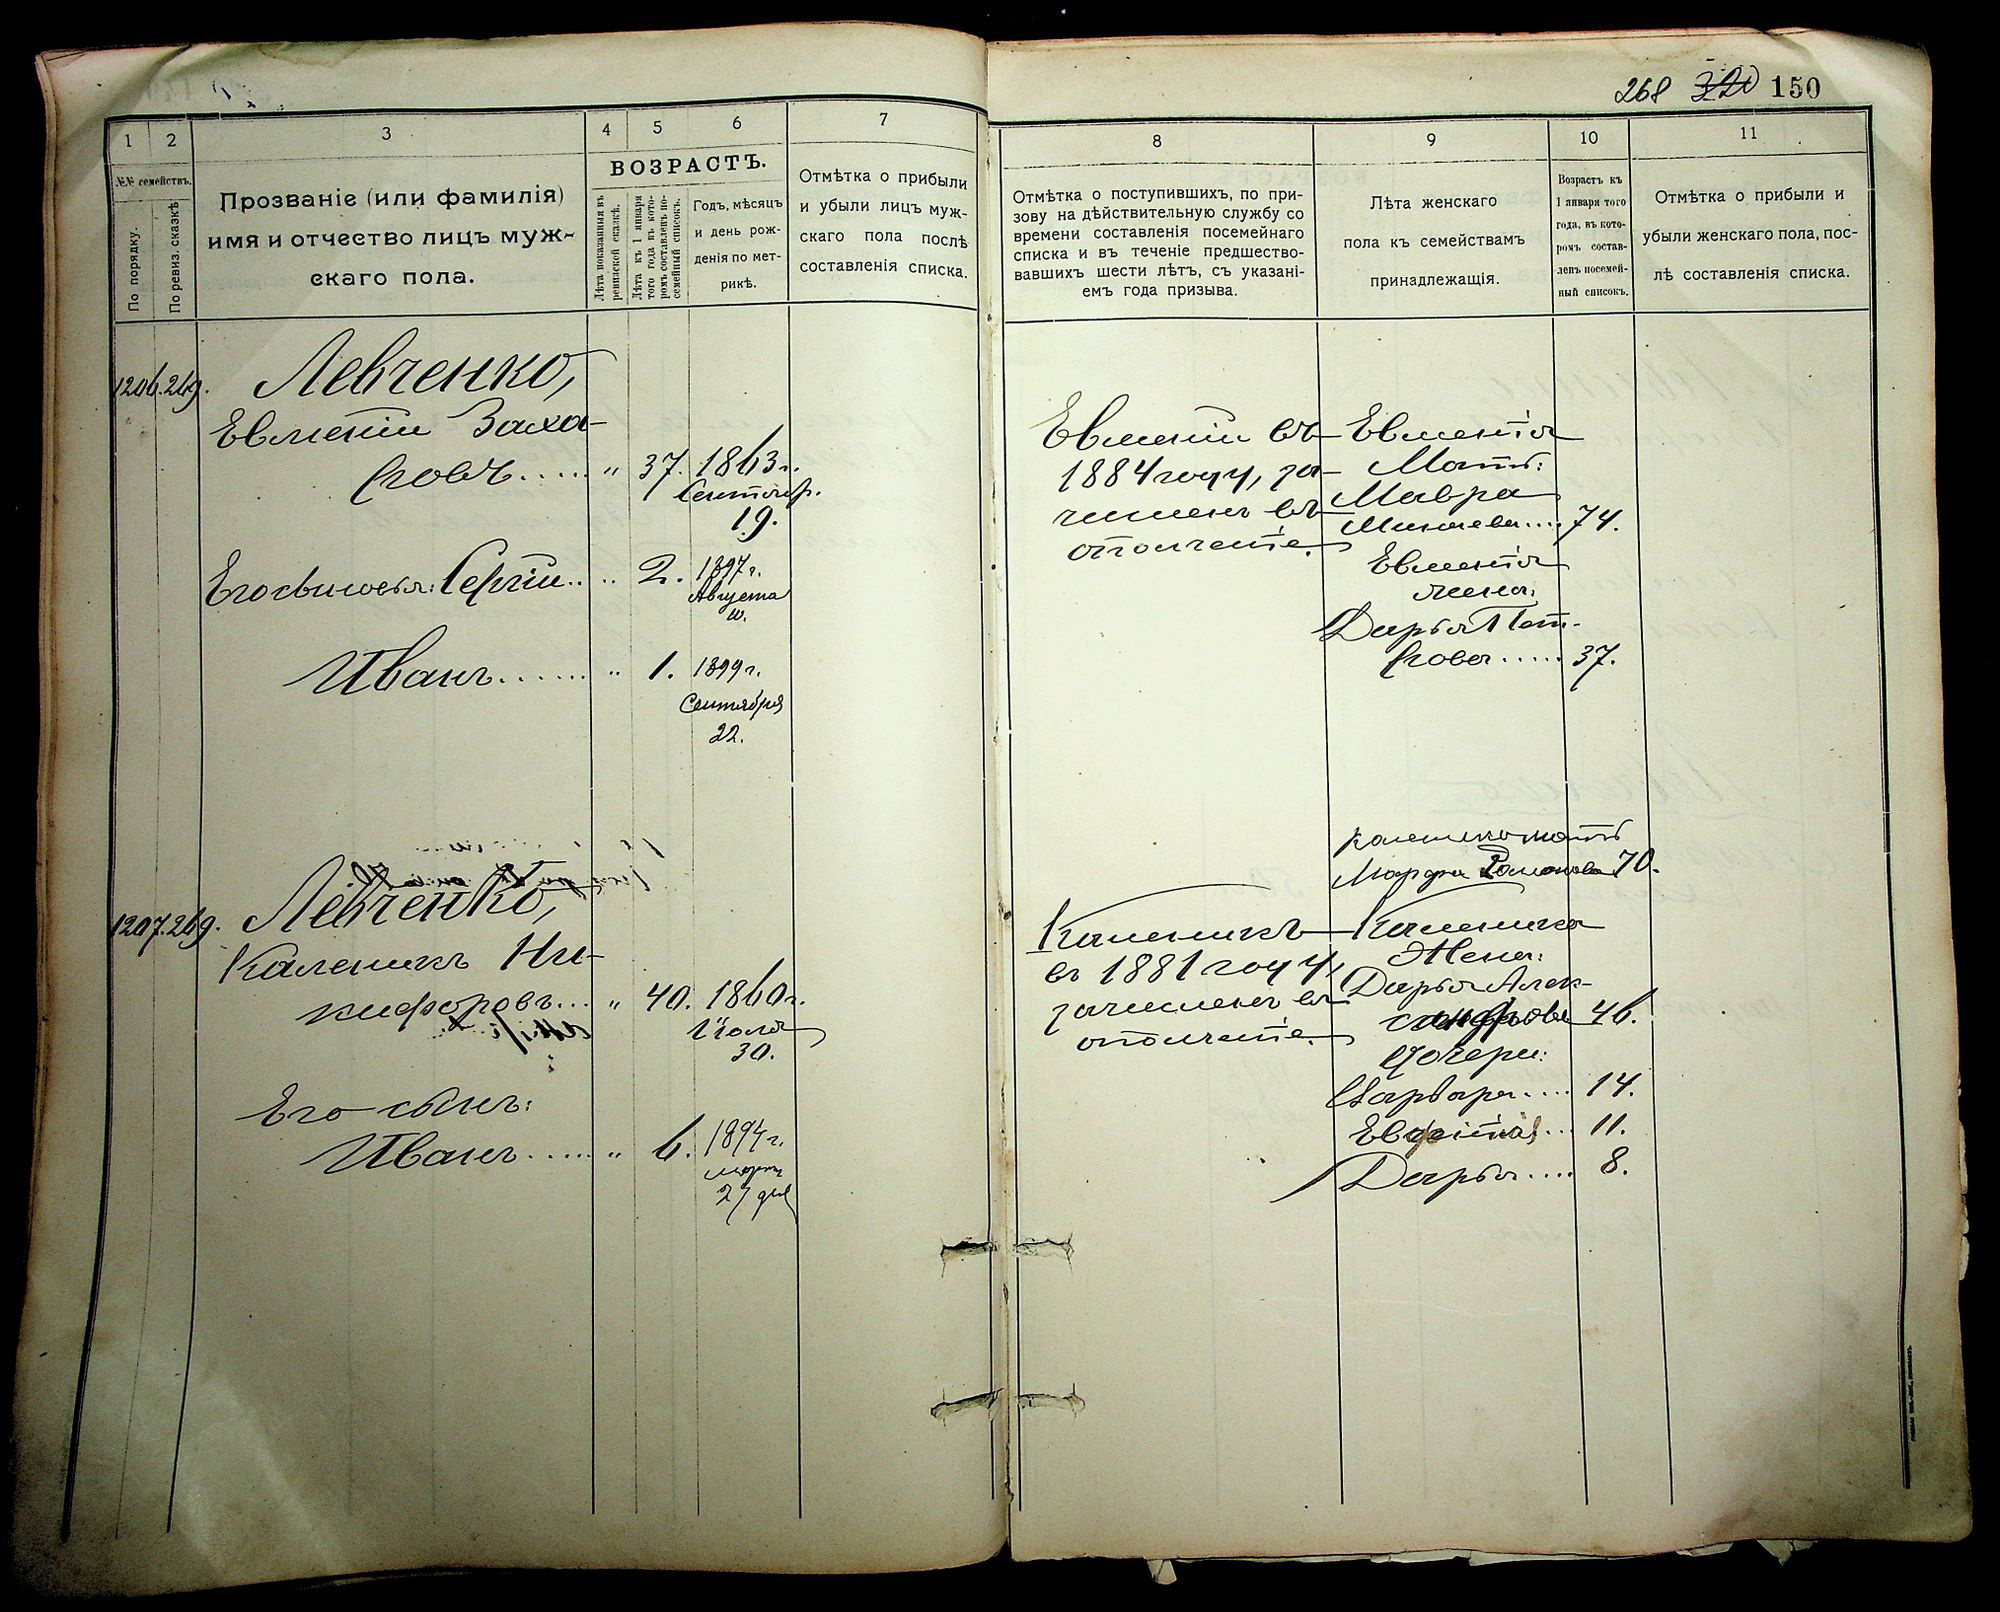 268 320 150
1 2 3 4 5 6 7
№№ семействъ.
По порядку.
По ревиз. сказкѣ
Прозваніе (или фамилія)
имя и отчество лицъ муж-
скаго пола.
ВОЗРАСТЪ.
Лѣта показанныя въ
ревизской сказкѣ.
Лѣта къ 1 января
того года въ кото-
ромъ составленъ по-
семейный списокъ.
Годъ, мѣсяцъ
и день рож-
денія по мет-
рикѣ.
Отмѣтка о прибыли
и убыли лицъ муж-
скаго пола послѣ
составленія списка.
1206. 269. Левченко,
Евменій Заха-
ровъ..... " 37. 1863 г.
Сентябр.
19.
Его сыновья: Сергій.... 2. 1897 г.
Августа
Иванъ....... " 1. 1899 г.
Сентября
22.
1207. 269. Левченко,
Каленикъ Ни-
кифоровъ... " 40. 1860 г.
Іюля
30.
Его сынъ:
Иванъ...... " 6. 1894 г.
марта
27 дня
8 9 10 11
Отмѣтка о поступившихъ, по при-
зову на дѣйствительную службу со
времени составленія посемейнаго
списка и въ теченіе предшество-
вавшихъ шести лѣтъ, съ указані-
емъ года призыва.
Лѣта женскаго
пола къ семействамъ
принадлежащія.
Возрастъ къ
1 января того
года, въ кото-
ромъ состав-
ленъ посемей-
ный списокъ.
Отмѣтка о прибыли и
убыли женскаго пола, пос-
лѣ составленія списка.
Евменій въ
1884 году, за-
численъ въ
ополченіе.
Евменія
Мать:
Мавра
Минаева.... 74.
Евменія
жена:
Дарья Пет-
рова..... 37.
Каленика мать
Марфа Романова 70.
Каленикъ
въ 1881 году,
зачисленъ въ
ополченіе.
Каленика
Жена:
Дарья Алек-
сандрова 46.
Дочери:
Варвара.... 14.
Евдокія... 11.
Дарья.... 8.